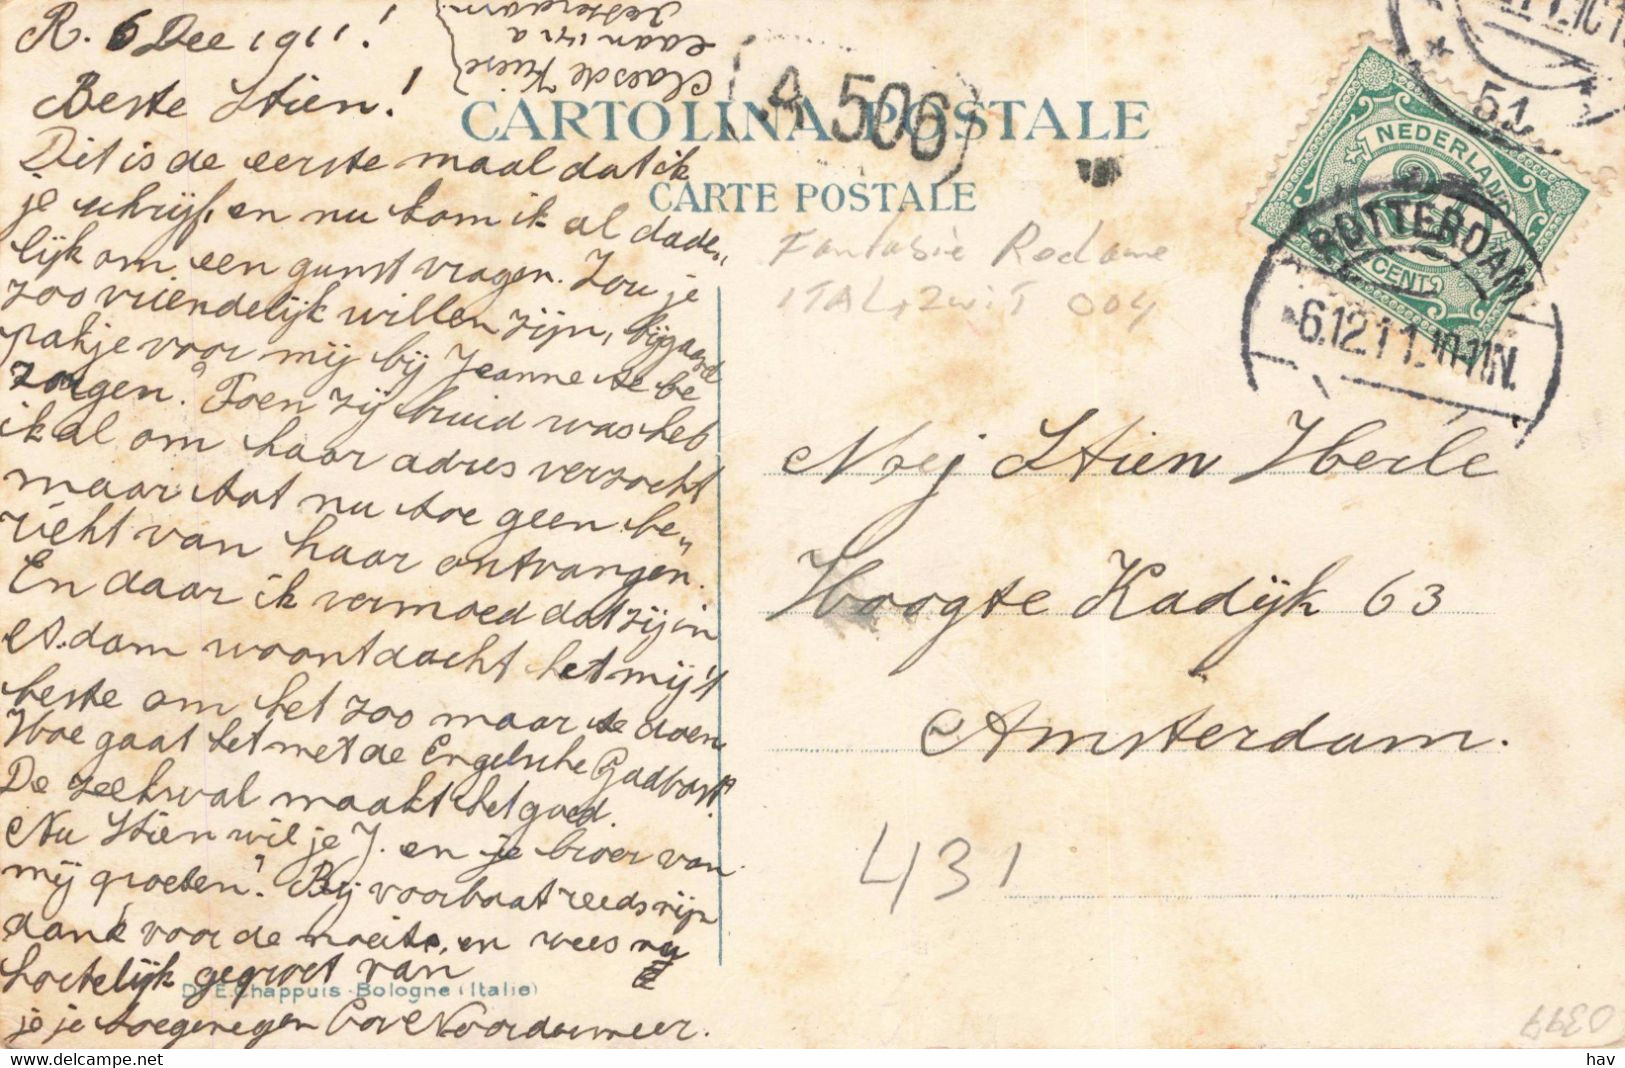 R. 6 Dec 1911!
Beste Stien!
Dit is de eerste maal dat ik
je schrijf, en nu kom ik al dade„
lijk om een gunst vragen. Zou je
zoo vriendelijk willen zijn, bijgaand
pakje voor mij bij Jeanne te be
zorgen? Toen zij bruid was heb
ik al om haar adres verzocht
maar tot nu toe geen be„
richt van haar ontvangen.
En daar ik vermoed dat zij in
A.dam woont dacht het mij 't
beste om het zoo maar te doen
Hoe gaat het met de Engelsche
De zeehval maakt het goed.
Nu Stien wil je J. en je broer van
mij groeten? Bij voorbaat reeds mijn
dank voor de moeite, en wees
hartelijk gegroet van
je je toegenegen Cor Noordermeer.
Claes de
laan 171 a
Rotterdam
CARTOLINA POSTALE
CARTE POSTALE
A 506
Fantasie Reclame
ITAL, ZwiT 004
NEDERLAND
2½
CENT
ROTTERDAM
-6.12.11. 10-11N.
51
Mej Stien Herle
Hoogte Kadijk 63
Amsterdam.
431
Dr. E. Chappuis - Bologne (Italie)
0399
delcampe.net
hav